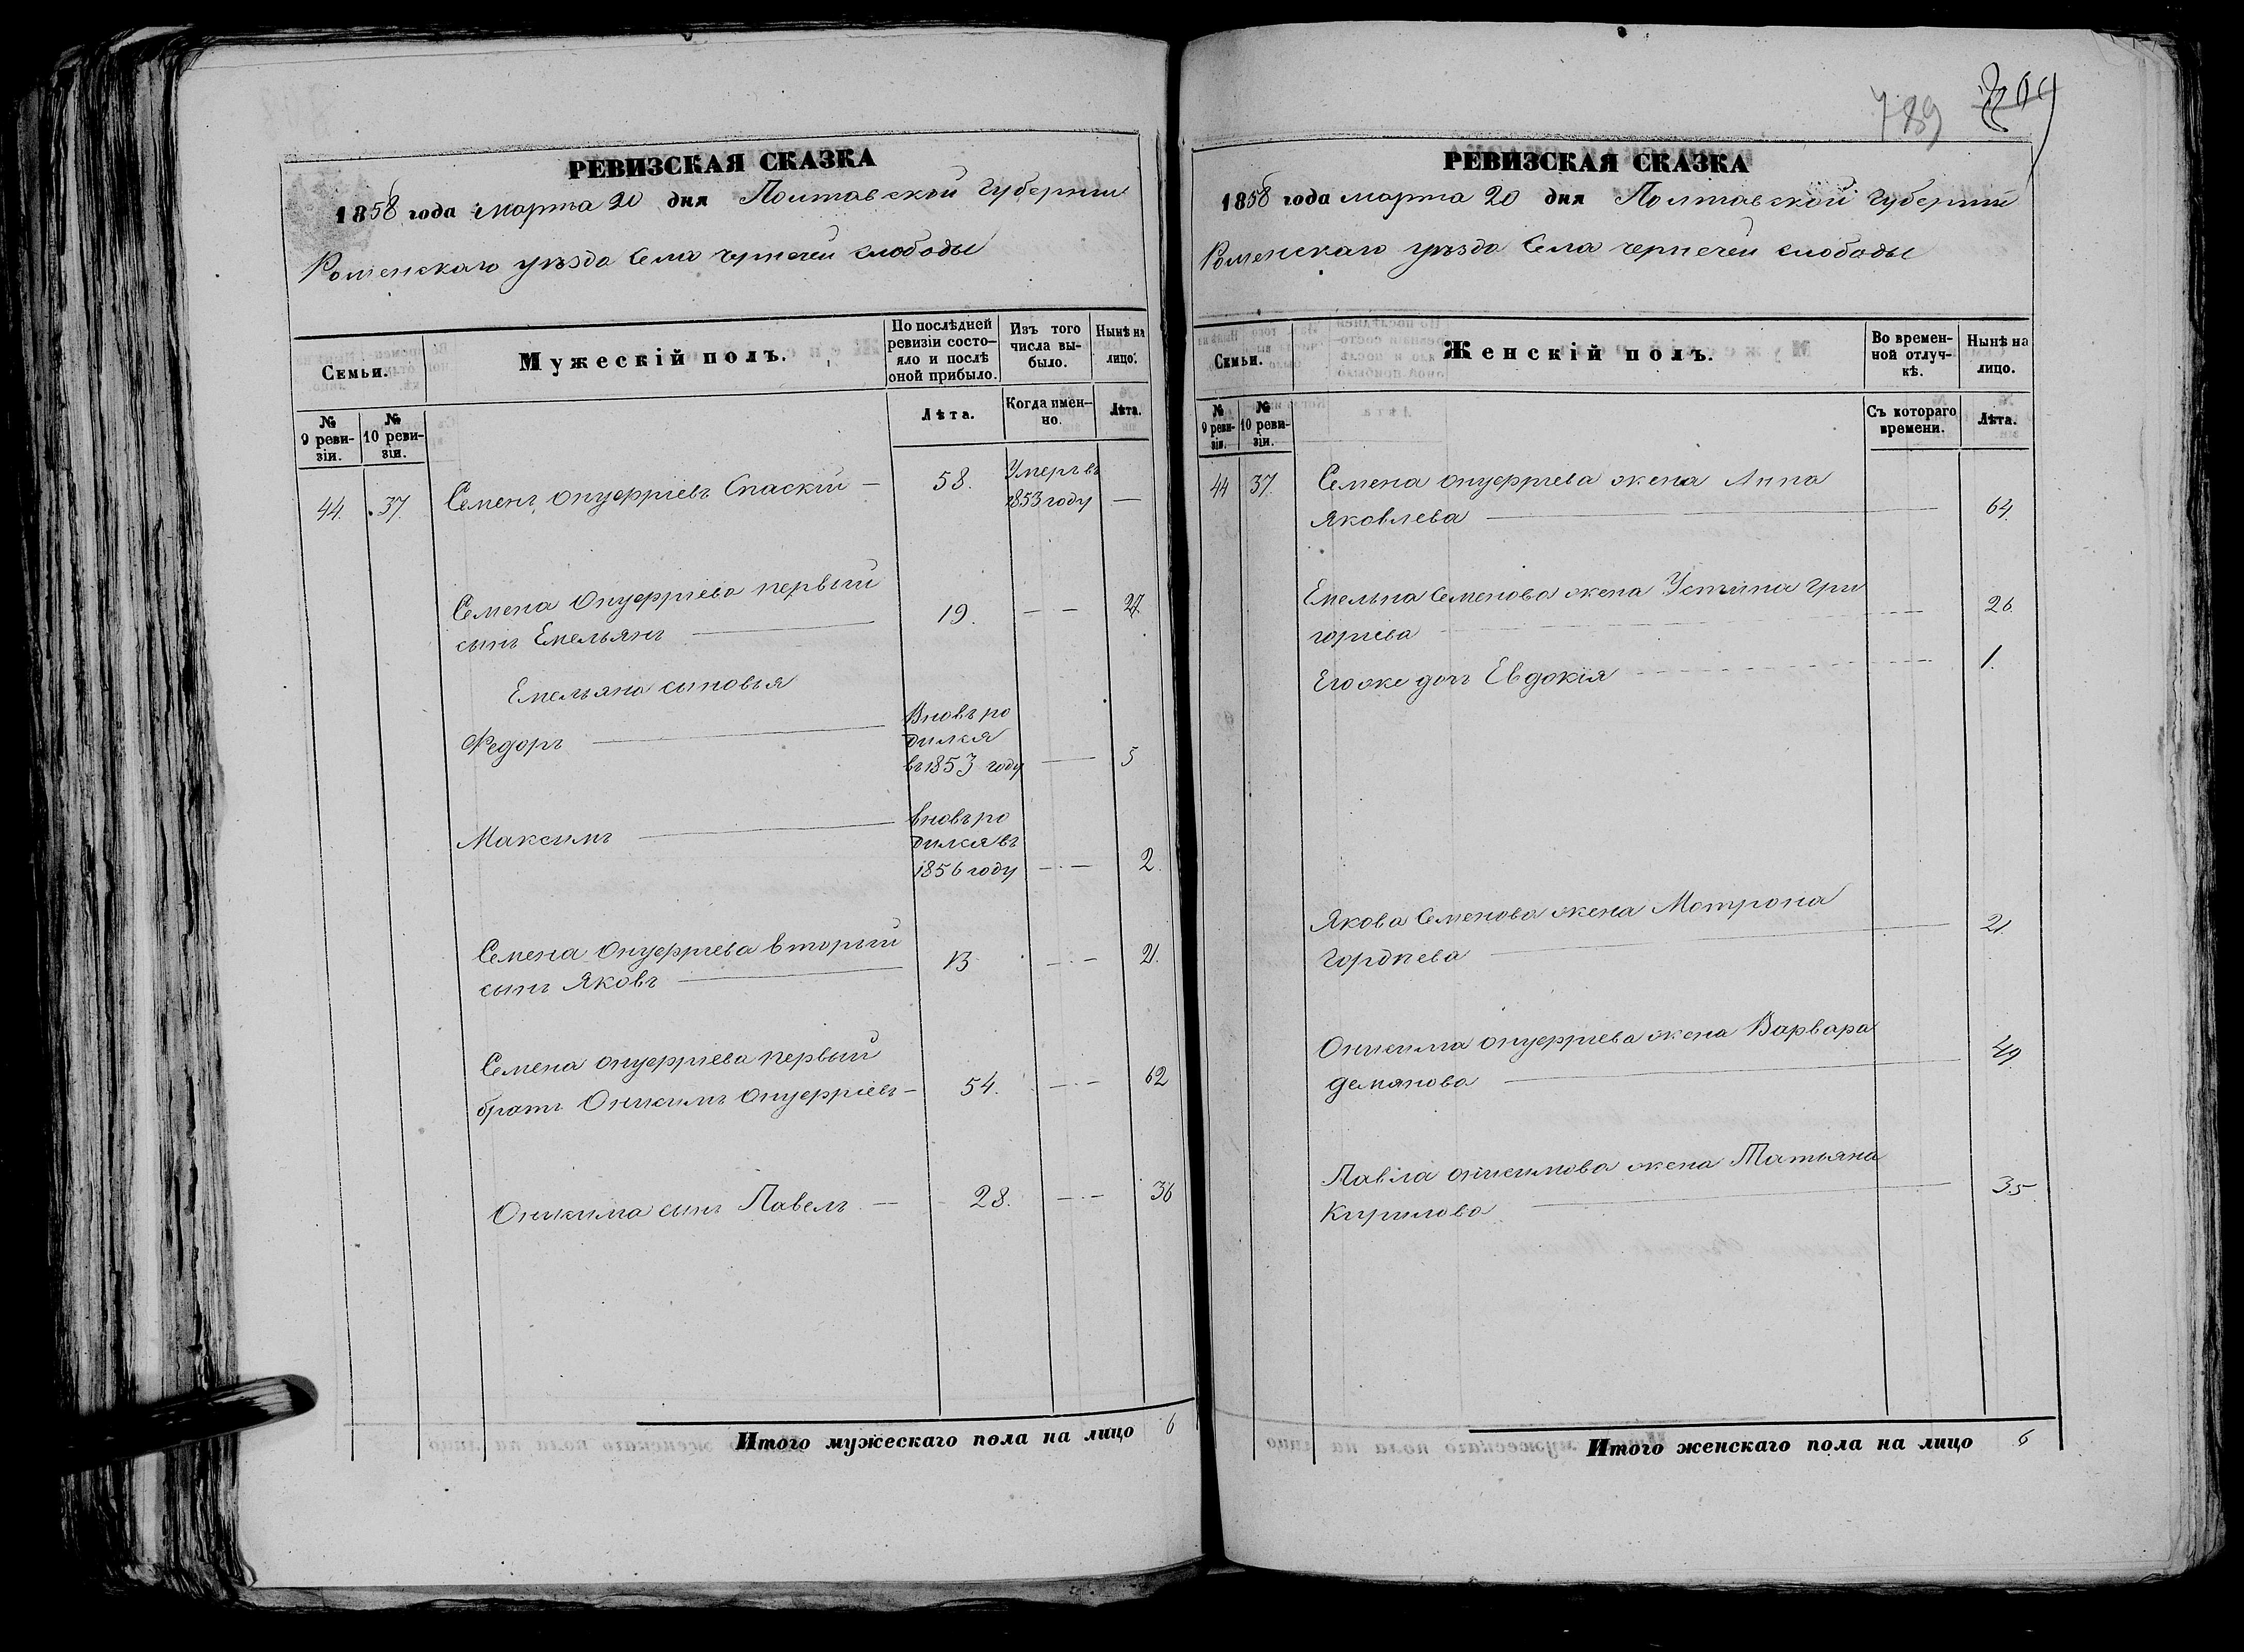 789
РЕВИЗСКАЯ СКАЗКА
1858 года марта 20 дня Полтавской Губернии
Роменскаго уѣзда Села чернечей слободы
Семьи.
Мужескій полъ.
По послѣдней ревизіи состояло и послѣ оной прибыло.
Изъ того числа выбыло.
Нынѣ на лицо.
№ 9 ревизіи.
№ 10 ревизіи.
Лѣта.
Когда именно.
Лѣта.
44. 37. Семенъ онуфріевъ Спаскій — 58. Умеръ въ 1853 году —
Семена Онуфріева первый
сынъ Емельянъ — 19. — — 27.
Емельяна сыновья
Федоръ — Вновь родился въ 1853 году — 5
Максимъ — вновь родился въ 1856 году — — 2.
Семена Онуфріева вторый
сынъ Яковъ — 13 — — 21.
Семена онуфріева первый
братъ Онисимъ онуфріевъ — 54. — — 62
Онисима сынъ Павелъ — 28. — — 36
Итого мужескаго пола на лицо 6
РЕВИЗСКАЯ СКАЗКА
1858 года марта 20 дня Полтавской Губерніи
Роменскаго уѣзда Села чернечей слободы
Семьи.
Женскій полъ.
Во временной отлучкѣ.
Нынѣ на лицо.
№ 9 ревизіи.
№ 10 ревизіи.
Съ котораго времени.
Лѣта.
44 37. Семена онуфріева жена Анна
Яковлева — 64.
Емельяна Семенова жена Устина Гри
горіева — 26.
Его же дочь Евдокія — 1.
Якова Семенова жена Мотрона
Гордѣева — 21.
Онисима онуфріева жена Варвара
демянова — 49.
Павла онисимова жена Татьяна
Кирилова — 35.
Итого женскаго пола на лицо 6